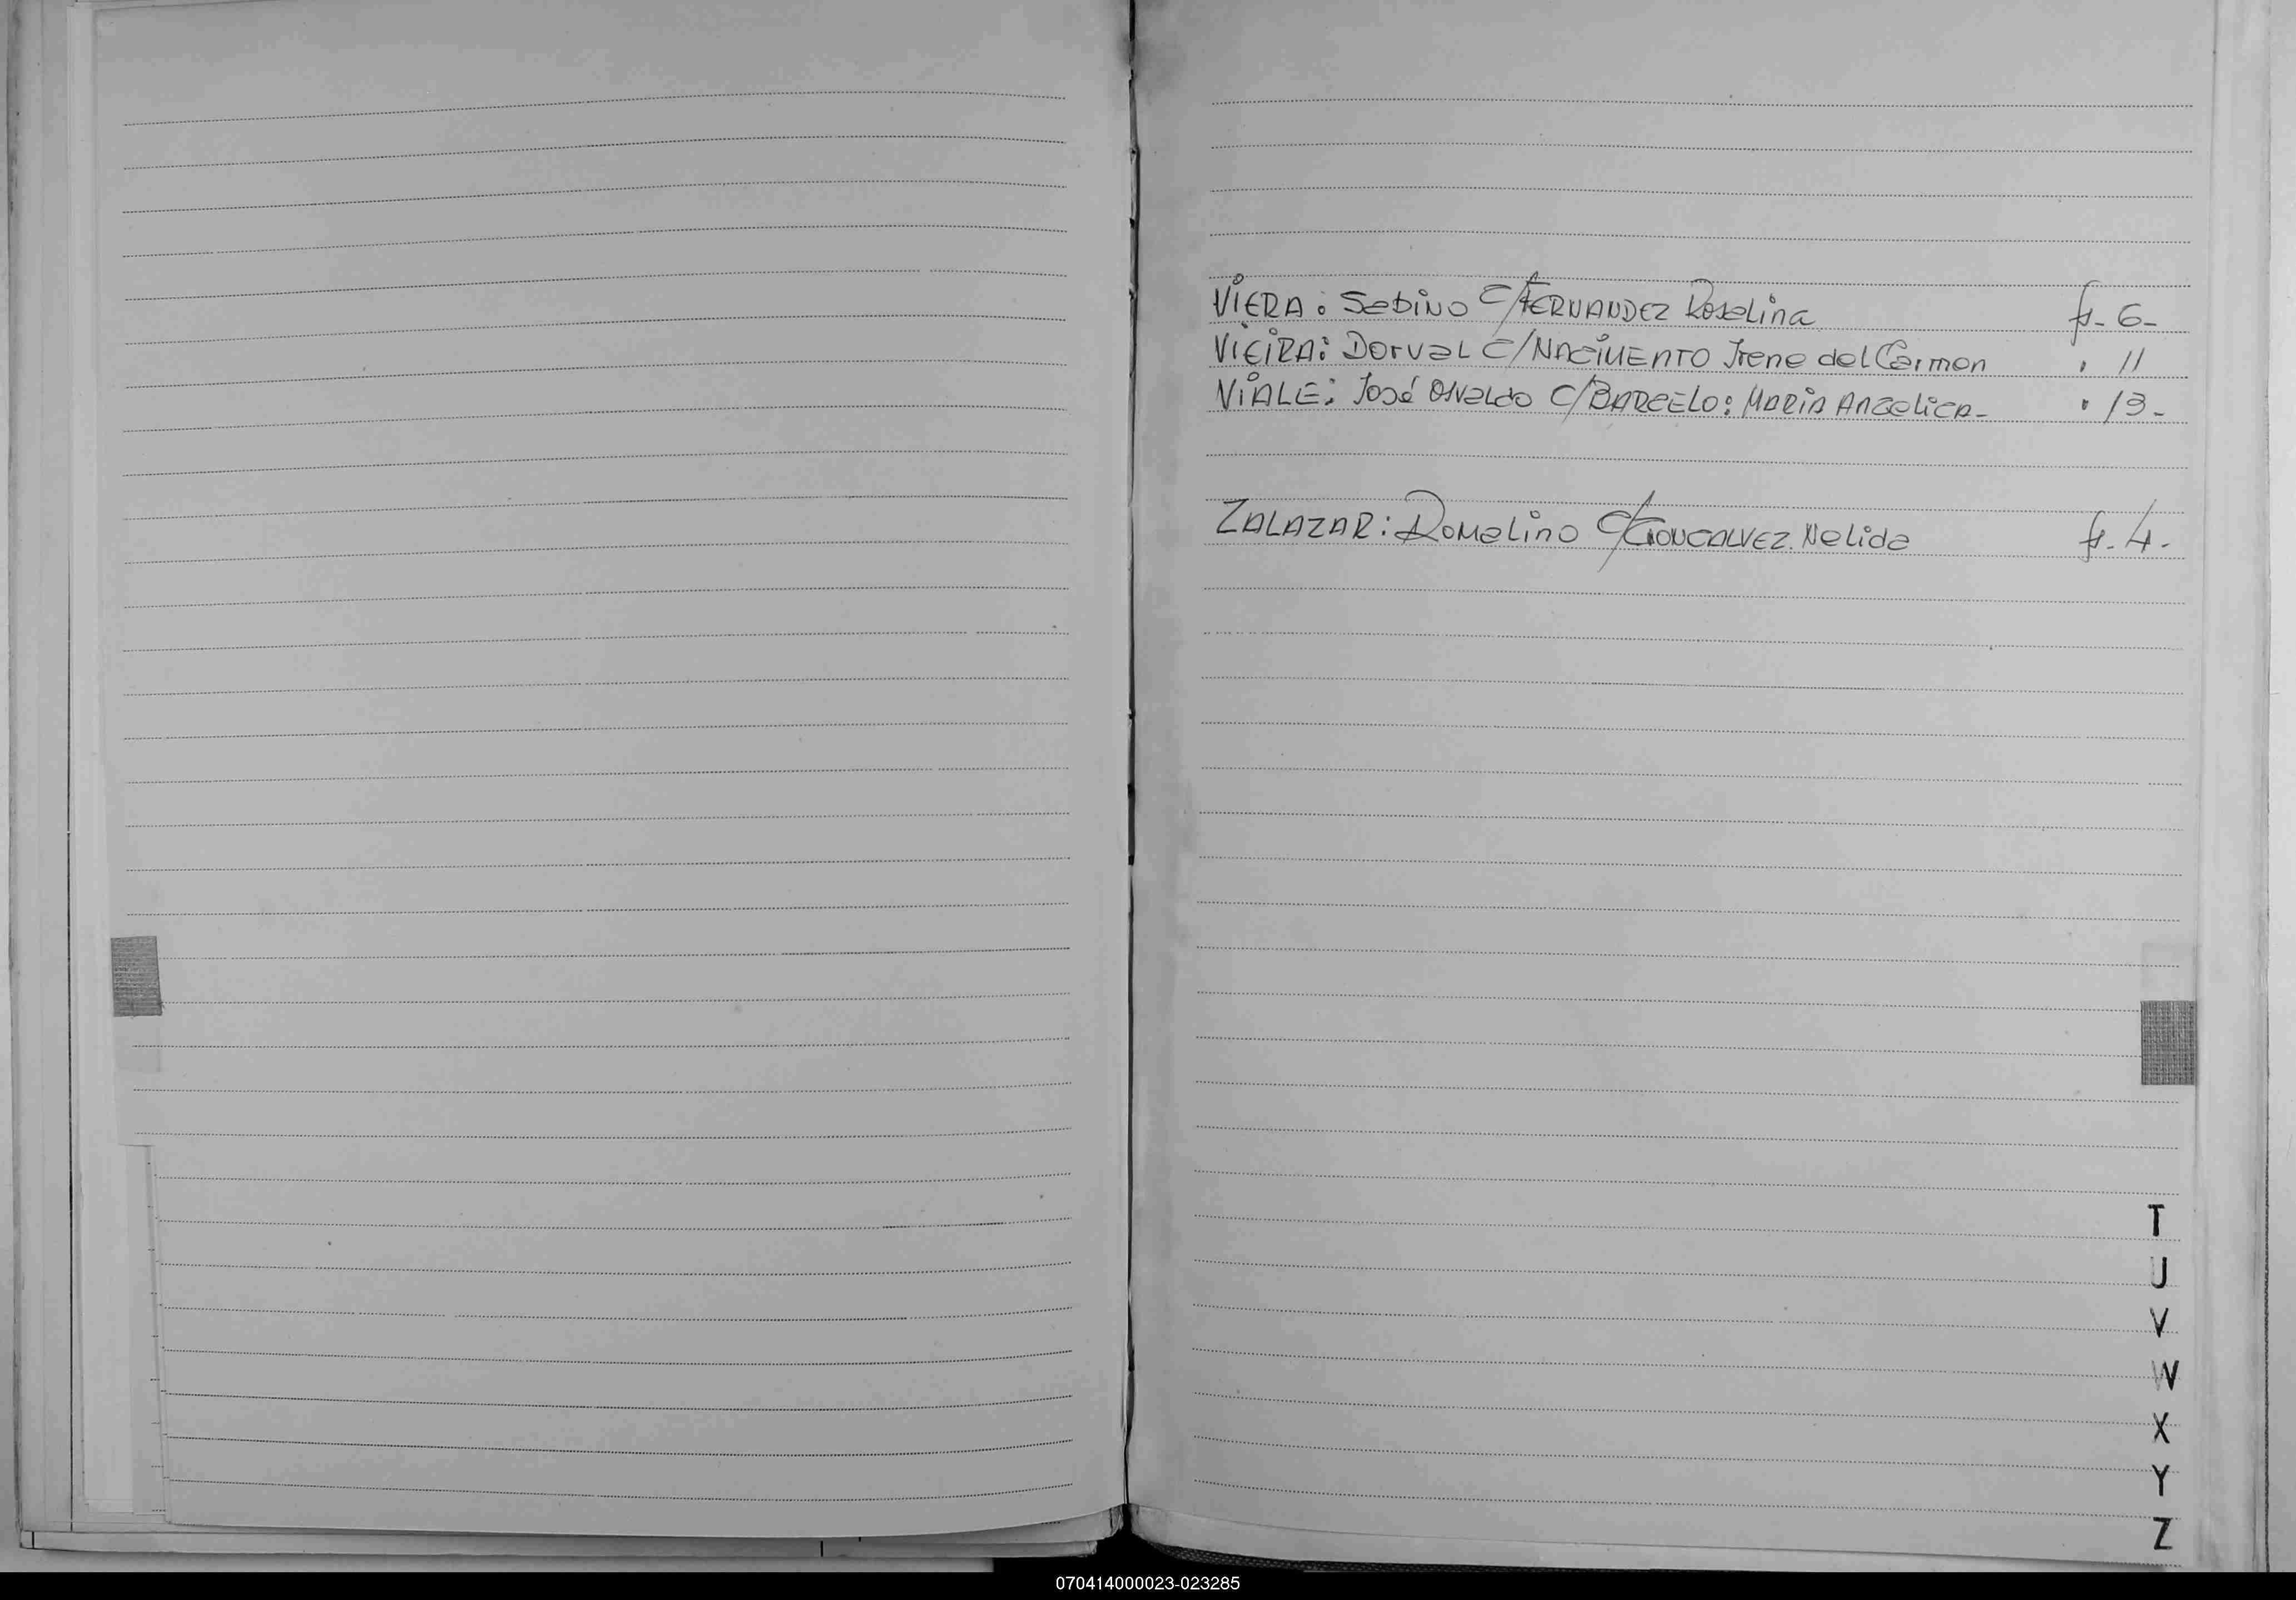 VIERA: Sabino C/FERNANDEZ Roselina fs- 6-
VIEIRA: Dorval C/NACIMENTO Irene del Carmen " 11
VIALE: José Osvaldo C/BARCELO: MARIA ANGELICA- " 13-
ZALAZAR: Romalino C/GONCALVEZ. Nelida fs. 4.
T
U
V
W
X
Y
Z
070414000023-023285